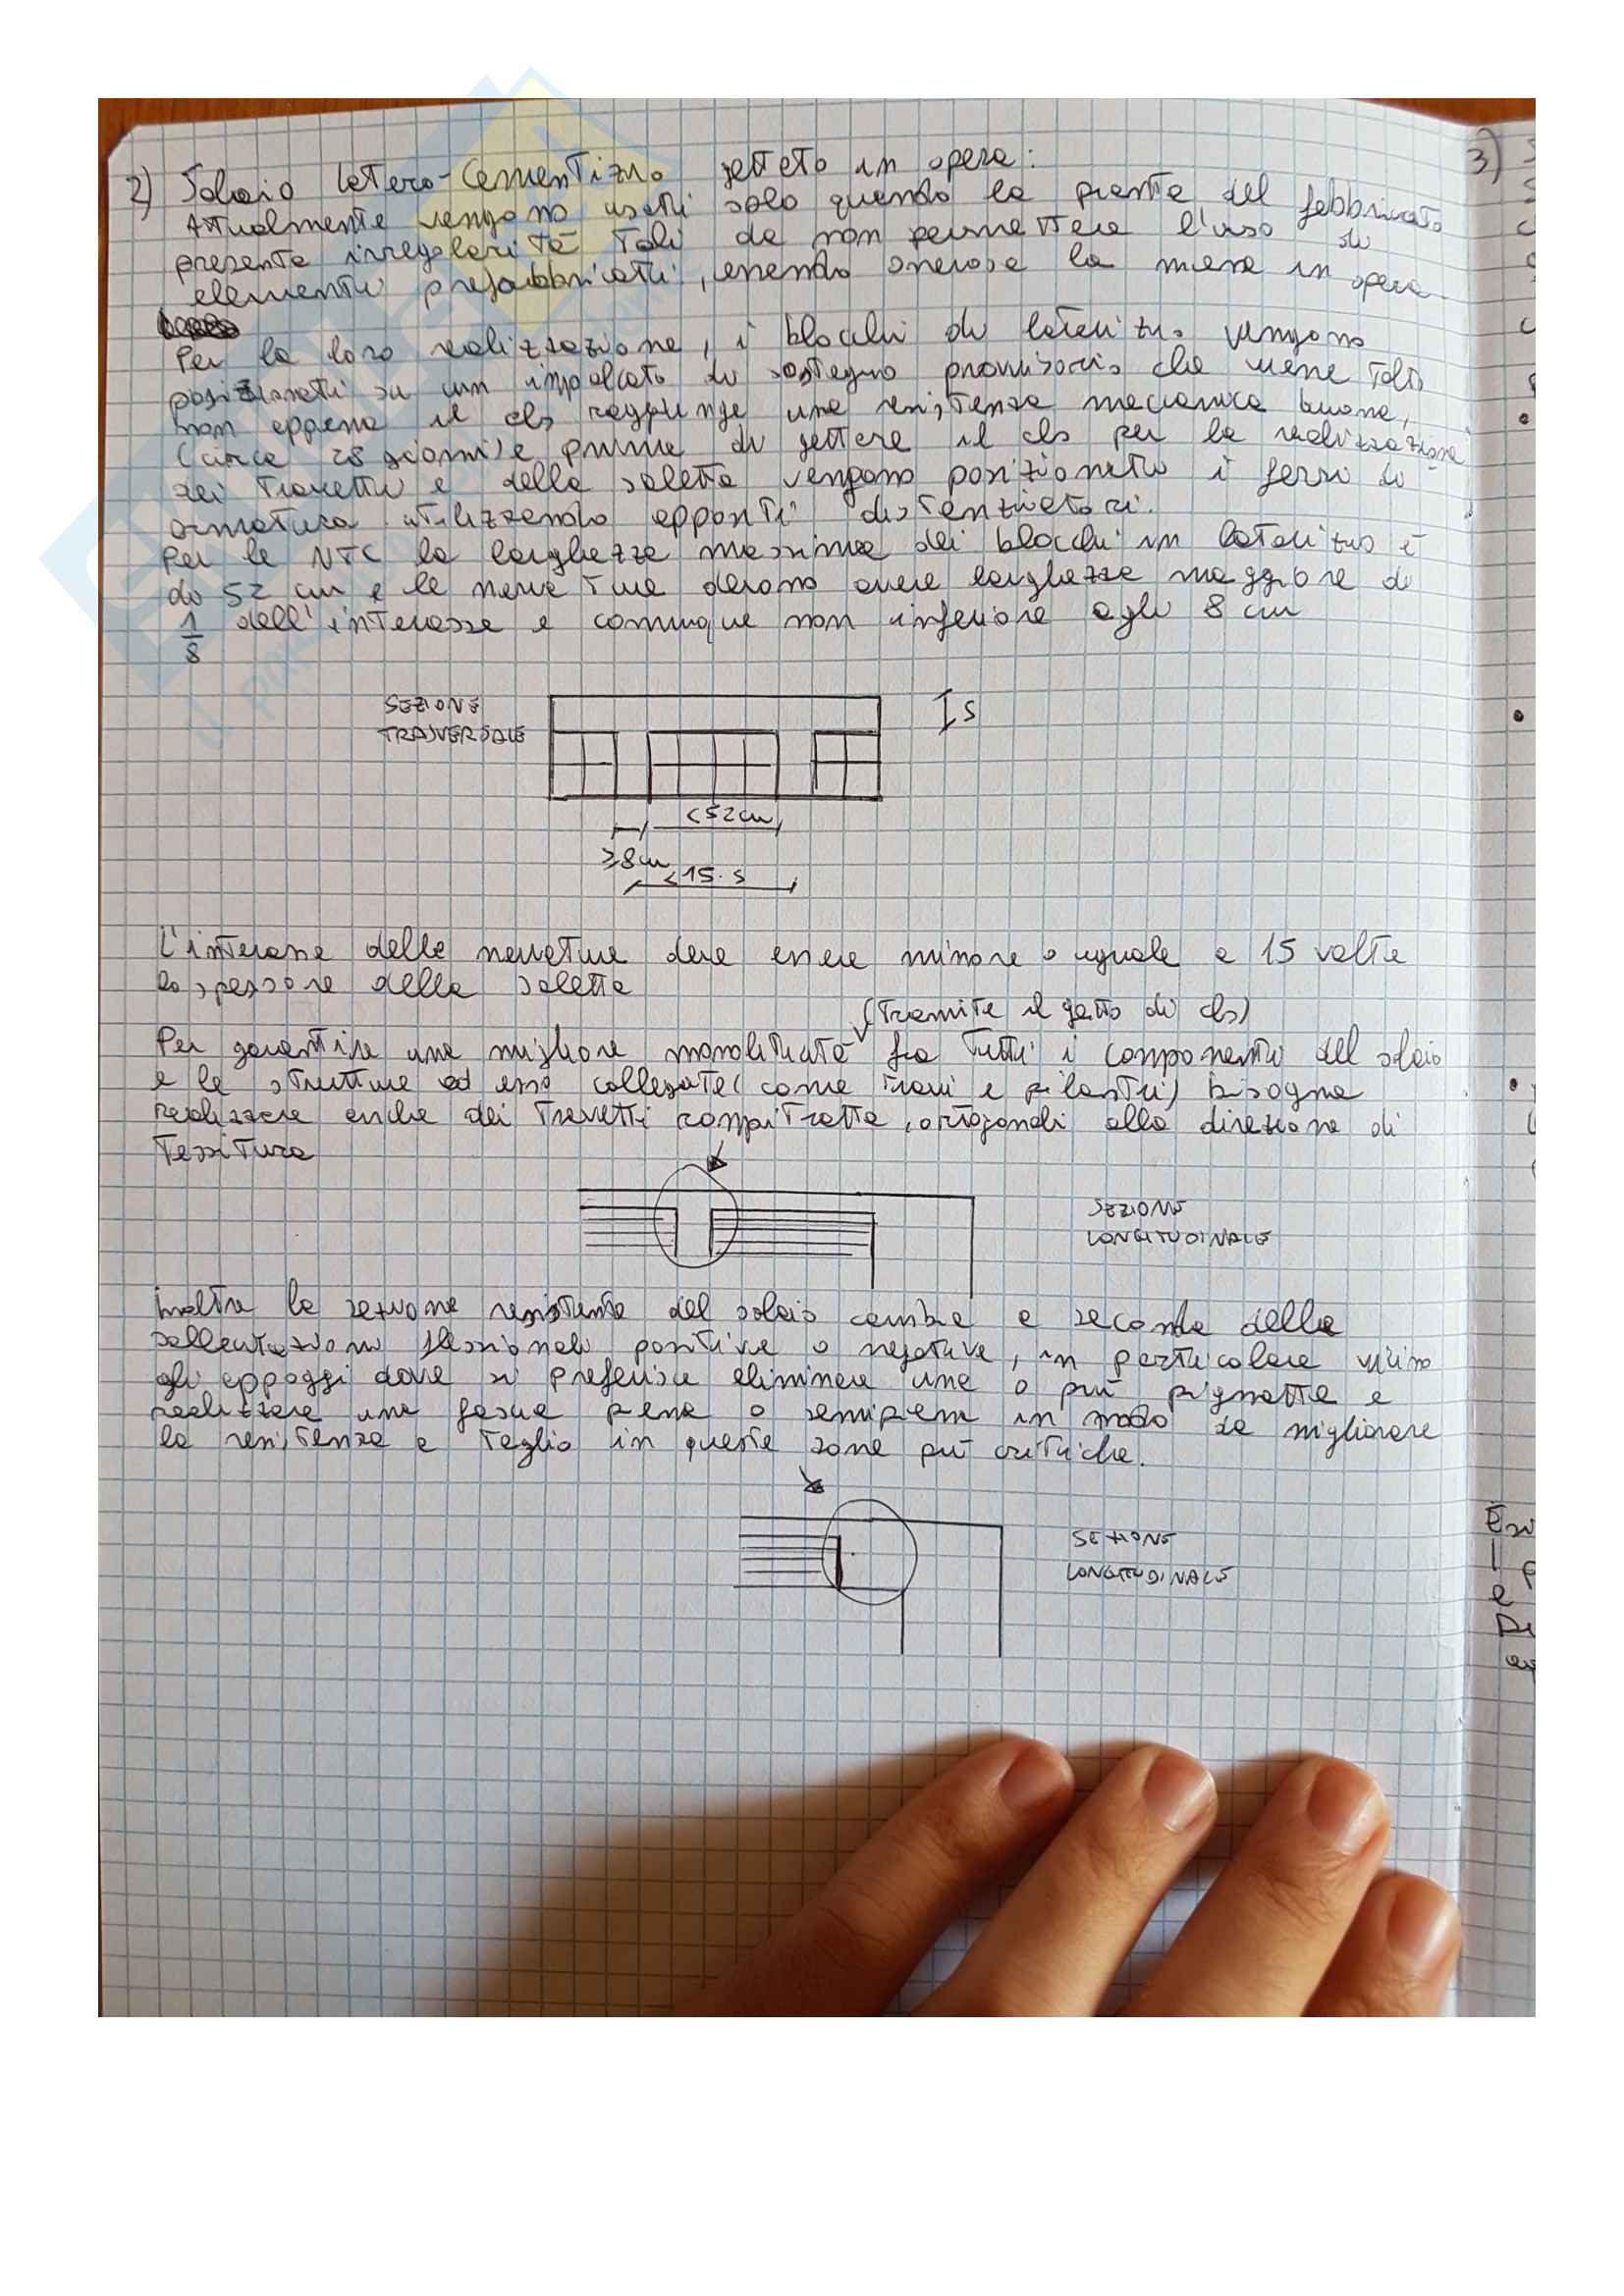 2) Solaio latero-cementizio gettato in opera:
Attualmente vengono usati solo quando la pianta del fabbricato
presenta irregolarità tali da non permettere l'uso di
elementi prefabbricati, essendo onerosa la messa in opera.
Per la loro realizzazione, i blocchi di laterizio vengono
posizionati su un impalcato di sostegno provvisorio che viene tolto
non appena il cls raggiunge una resistenza meccanica buona,
(circa 28 giorni) e prima di gettare il cls per la realizzazione
dei travetti e della soletta vengono posizionati i ferri di
armatura utilizzando appositi distanziatori.
Per le NTC la larghezza massima dei blocchi in laterizio è
di 52 cm e le nervature devono avere larghezza maggiore di
1/8 dell'interasse e comunque non inferiore agli 8 cm
SEZIONE
TRASVERSALE
S
<52cm
≥8cm
<15·s
L'interasse delle nervature deve essere minore o uguale a 15 volte
lo spessore della soletta
(tramite il getto di cls)
Per garantire una migliore monoliticità fra tutti i componenti del solaio
e le strutture ad esso collegate (come travi e pilastri) bisogna
realizzare anche dei travetti rompitratta, ortogonali alla direzione di
tessitura
SEZIONE
LONGITUDINALE
inoltre la sezione resistente del solaio cambia a seconda delle
sollecitazioni flessionali positive o negative, in particolare vicino
gli appoggi dove si preferisce eliminare una o più pignatte e
realizzare una fascia piena o semipiena in modo da migliorare
la resistenza a taglio in queste zone più critiche.
SEZIONE
LONGITUDINALE
3)